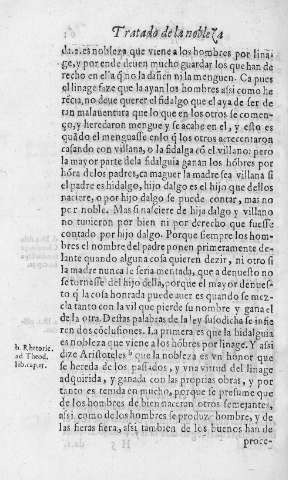 Tratado de la nobleza
da.2. es nobleza que viene a los hombres por lina
ge, y por ende deuen mucho guardar los que han de
recho en ella q̃ no la dañen ni la menguen. Ca pues
el linage faze que la ayan los hombres assi como he
recia, no deue querer el fidalgo que el aya de ser de
tan malauentura que lo que en los otros se comen-
ço, y heredaron mengue y se acabe en el, y esto es
quãdo el menguasse enlo q̃ los otros acrecentaron
casando con villana, o la fidalga cõ el villano: pero
la mayor parte dela fidalguia ganan los hõbres por
hõra de los padres, ca maguer la madre sea villana si
el padre es hidalgo, hijo dalgo es el hijo que dellos
naciere, o por hijo dalgo se puede contar, mas no
por noble. Mas si nasciere de hija dalgo y villano
no tuuieron por bien ni por derecho que fuesse
contado por hijo dalgo. Porque siempre los hom-
bres el nombre del padre ponen primeramente de-
lante quando alguna cosa quieren dezir, ni otro si
la madre nunca le seria mentada, que a denuesto no
se tornasse del hijo della, porque el mayor denues-
to q̃ la cosa honrada puede auer es quando se mez-
cla tanto con la vil que pierde su nombre y gana el
de la otra. Destas palabras de la ley susodicha se infie
ren dos cõclusiones. La primera es que la hidalguia
es nobleza que viene a los hõbres por linage. Y assi
dize Aristoteles b que la nobleza es vn honor que
se hereda de los passados, y vna virtud del linage
adquirida, y ganada con las proprias obras, y por
tanto es tenida en mucho, porque se presume que
de los hombres de bien naceran otros semejantes,
assi como de los hombres se produze hombre, y de
las fieras fiera, assi tambien de los buenos han de
proce-
b. Rhetoric.
ad Theod.
lib.